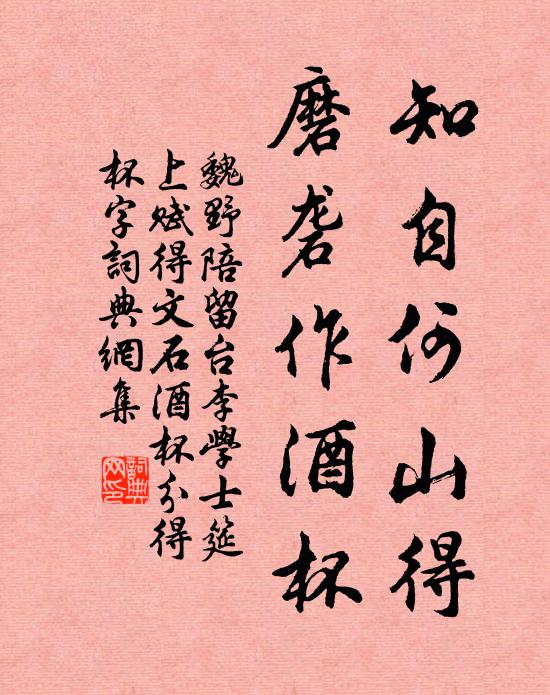 知自何山得
磨砻作酒杯
魏野陪留台李學士筵
上赋得文石酒杯分得
杯字詞典網集
詞典網印